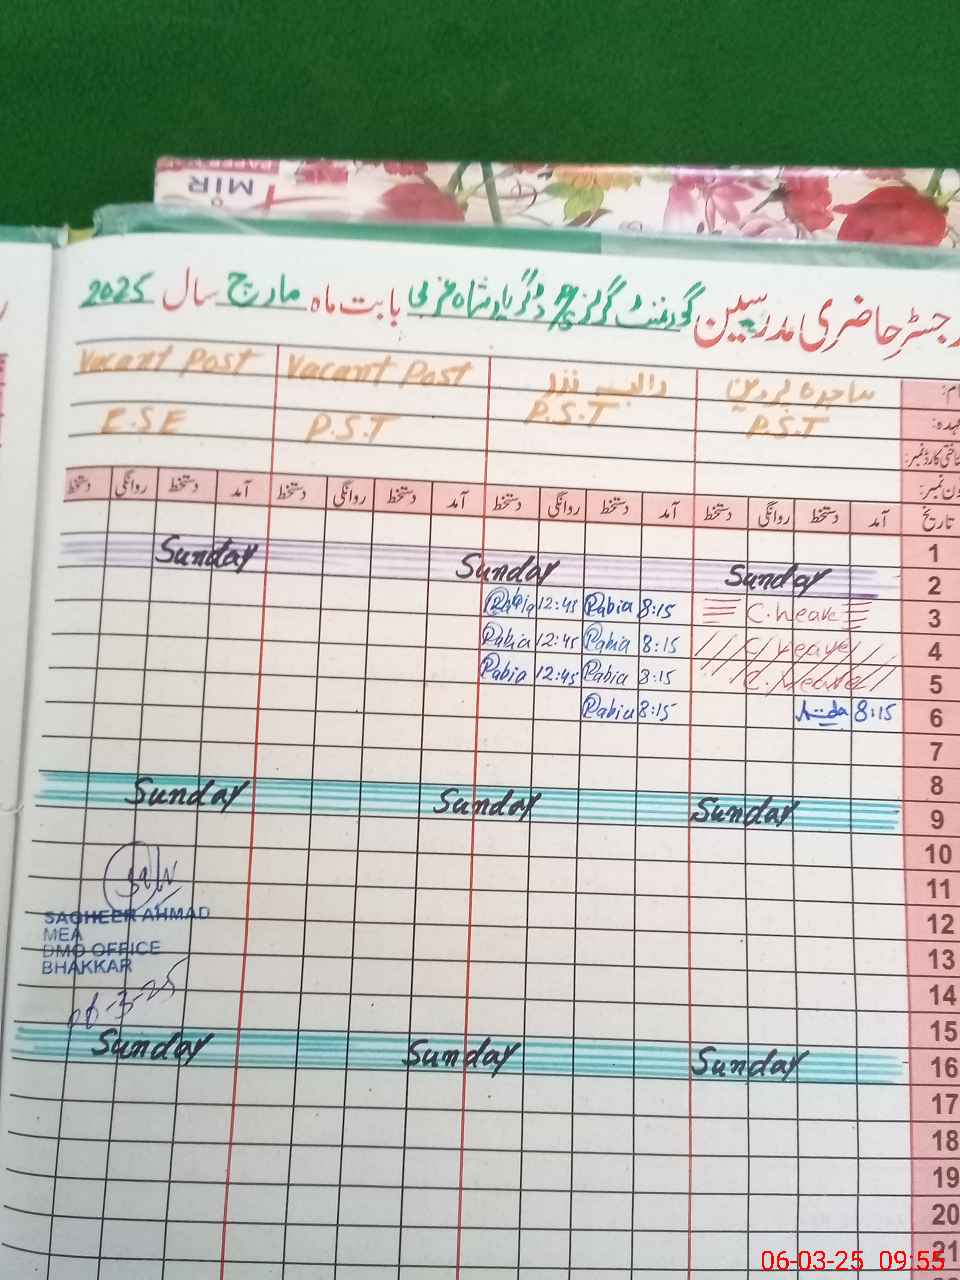 MIR
رجسٹر حاضری مدرسین گورنمنٹ گرلز بابت ماہ مارچ سال 2025
نام: ساجدہ پروین Vacant Post Vacant Post
عہدہ: P.S.T P.S.T P.S.T E.S.E
شناختی کارڈ نمبر:
فون نمبر:
تاریخ آمد دستخط روانگی دستخط آمد دستخط روانگی دستخط آمد دستخط روانگی دستخط آمد دستخط روانگی دستخط
1
2 Sunday Sunday Sunday
3 C.leave 8:15 Rabia 12:45 Rabia
4 C.leave 8:15 Rabia 12:45 Rabia
5 8:15 Rabia 12:45 Rabia
6 8:15 8:15 Rabia
7
8
9 Sunday Sunday Sunday
10
11
12
13
14
15
16 Sunday Sunday Sunday
17
18
19
20
21
SAGHEER AHMAD
MEA
DMO OFFICE
BHAKKAR
06-3-25
06-03-25 09:55